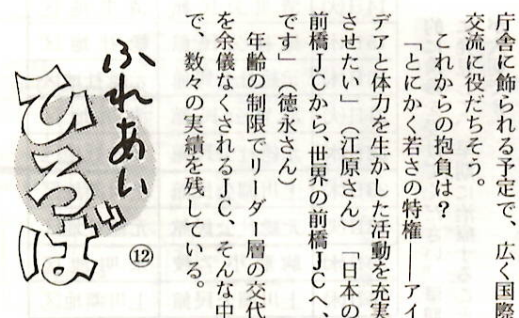 庁舎に飾られる予定で、広く国際
交流に役だちそう。
これからの抱負は？
「とにかく若さの特権――アイ
デアと体力を生かした活動を充実
させたい」（江原さん）「日本の
前橋ＪＣから、世界の前橋ＪＣへ、
です」（徳永さん）
年齢の制限でリーダー層の交代
を余儀なくされるＪＣ、そんな中
で、数々の実績を残している。
ふれあい
ひろば
⑫